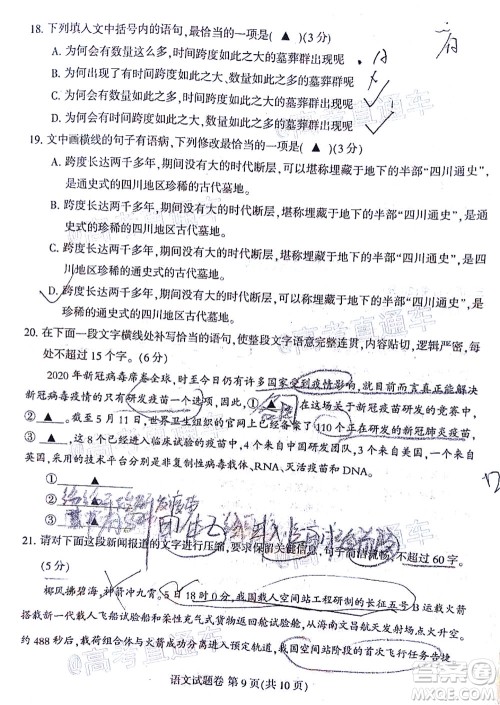 18. 下列填入文中括号内的语句，最恰当的一项是（ ▲ ）(3分)
A. 为何会有数量这么多，时间跨度如此之大的墓葬群出现呢
B. 为何出现了有时间跨度如此之大，数量如此之多的墓葬群呢
C. 为何会有数量如此之多，时间跨度如此之大的墓葬群出现呢
D. 为何会有时间跨度如此之大，数量如此之多的墓葬群出现呢
19. 文中画横线的句子有语病，下列修改最恰当的一项是（ ▲ ）(3分)
A. 跨度长达两千多年，没有大的时代断层，可以堪称埋藏于地下的半部“四川通史”，
是通史式的四川地区珍稀的古代墓地。
B. 跨度长达两千多年，期间没有大的时代断层，堪称埋藏于地下的半部“四川通史”，
是通史式的四川地区珍稀的古代墓地。
C. 跨度长达两千多年，没有大的时代断层，可以堪称埋藏于地下的半部“四川通史”，
是四川地区珍稀的通史式的古代墓地。
D. 跨度长达两千多年，期间没有大的时代断层，堪称埋藏于地下的半部“四川通史”，是四川地区
珍稀的通史式的古代墓地。
20. 在下面一段文字横线处补写恰当的语句，使整段文字语意完整连贯，内容贴切，逻辑严密，
每处不超过 15 个字。(6分)
2020 年新冠病毒席卷全球，时至今日仍有许多国家受到疫情影响，就目前而言真正能解决
新冠病毒疫情的只有研发疫苗一个选项， ① ▲ 。在这场关于新冠疫苗研发的竞赛中，
② ▲ 。截至 5 月 11 日，世界卫生组织的官网上已收集了 110 个正在研发的新冠肺炎疫苗，
③ ▲ ，这 8 个已经进入临床试验的疫苗中，4 个来自中国研发团队，3 个来自美国，
采用的技术平台分别是非复制性病毒载体、灭活疫苗、RNA、灭活疫苗和 DNA。
① ▲
② ▲
③ ▲
21. 请对下面这段新闻报道的文字进行压缩，要求保留关键信息，句子简洁流畅，不超过 60 字。
(5分)
椰风拂碧海，神箭冲九霄。5 日 18 时 0 分，我国载人空间站工程研制的长征五号 B 运载火箭
搭载新一代载人飞船试验船和柔性充气式货物返回舱试验舱，从海南文昌航天发射场升空，
约 488 秒后，载荷组合体与火箭成功分离，进入预定轨道，我国空间站阶段的首次飞行任务告捷
语文试题卷 第 9 页(共 10 页)